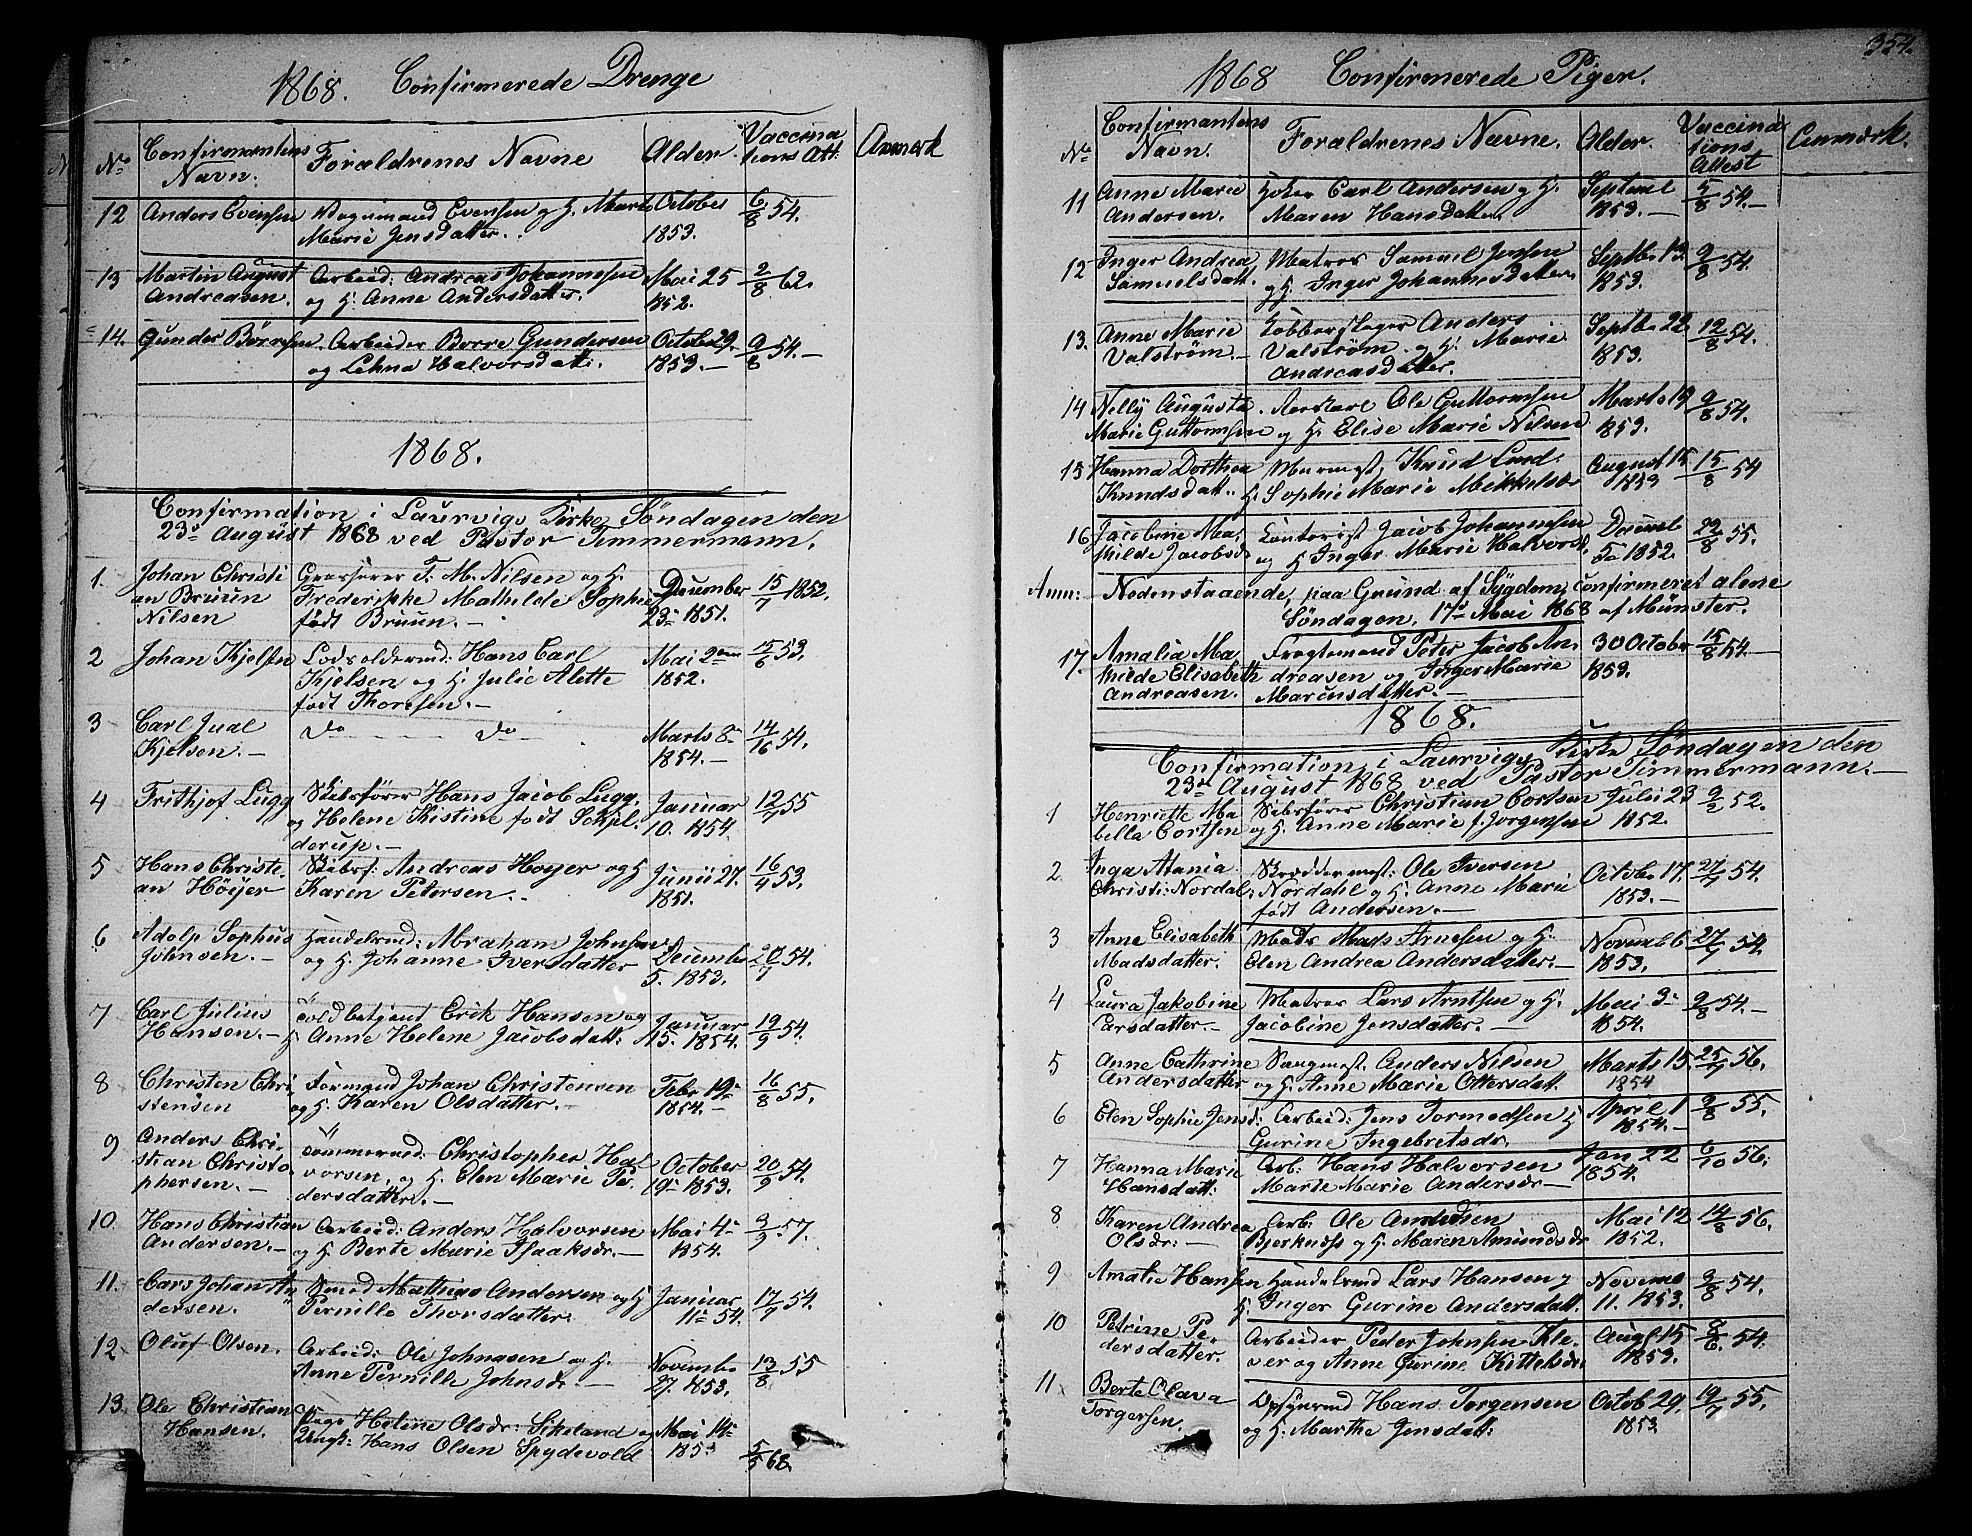 1868. Confirmerede Drenge
No Confirmantens Navn. Forældrenes Navne Alder. Vaccinations Att: Anmerk
12 Anders Evensen Evensen og H. Marte October 6/8 54.
Marie Jensdatter. 1853.
13 Martin August Arbeid: Andreas Johannesen Mai 25 2/8 62.
Andreasen. og H. Anne Andersdatter. 1852.
14. Gunder Börresen. Arbeider Borre Gundersen Octobe 29. 9/8 54.—
og Lehna Halvorsdatt: 1853.—
1868.
Confirmation i Laurvigs Kirke Söndagen den
23de August 1868 ved Pastor Timmermann.
1. Johan Christi T. M. Nilsen og H. December 15/7 1852.
an Bruun Frederikke Mathilde Sophie 23de 1851.
Nilsen född Bruun.—
2 Johan Kjelsen Lodsoldermd: Hans Carl Mai 2den 15/6 53.
Kjelsen og H. Julie Alette 1852.
født Thoresen.—
3 Carl Jual do do Marts 8de 14/16 54.
Kjelsen.— 1854.—
4 Frithjof Lugg Skibsfører Hans Jacob Lugg, Januar 12/7 55
og Helene Kistine født Schjel- 10. 1854.
derup.—
5 Hans Christi- Skibsf: Andreas Høyer og H Junii 27. 16/4 53.
an Høyer Karen Petersen.. 1851.
6 Adolp Sophus Handelsmd: Abraham Johnsen Decembe 20/7 54.
Johnsen.— og H. Johanne Iversdatter 5. 1853.
7 Carl Julius Toldbetjent Erik Hansen og Januar 19/9 54.
Hansen.— H. Anne Helene Jacobsdatt: 15. 1854.
8 Christen Chri- Formand Johan Christensen Febr 19de 16/8 55.
stensen og H. Karen Olsdatter.— 1854.—
9 Anders Chri- Tömmermd: Christopher Hal October 20/9 54.
stian Christo vorsen, og H. Elen Marie Pe 19de 1853.
phersen.— dersdatter.—
10. Hans Christian Arbeid: Anders Halvorsen Mai 4de 9/9 57.
Andersen.— og H. Berte Marie Isaaksdr.— 1854.
11. Lars Johan An Smed Mathias Andersen og H Januar 17/7 54.
dersen. Pernille Thorsdatter. 11te 54.
12 Oluf Olsen. Arbeid: Ole Johnasen og H. Novembe 13/8 55
Anne Pernille Johnsdr.— 27. 1853.
13. Ole Christian Pige Helene Olsdr: Sikeland og Mai 14de
Hansen. Ungk: Hans Olsen Spydevold 1853 5/5 68.
354.
1868 Confirmerede Piger.
No Confirmantens Navn. Forældrenes Navne. Alder. Vaccinations Attest Anmærk.
11 Anne Marie Carl Andersen og H. Septembe 5/8 54.—
Andersen. Maren Hansdatter. 1853.—
12 Inger Andrea Matros Samuel Jensen Septbe 13de 9/8 54.
Samuelsdatt. og H. Inger Johannesdatter. 1853.
13. Anne Marie Kobberslager Anders Septbe 22. 12/8 54.
Valström.— Valström og H. Marie 1853.
Andreasdatter.
14 Nelly Augusta Ole Guttormsen Marts 19 9/8 54.
Marie Guttormsen og H. Elise Marie Nilsen 1853.
15 Hanna Dorthea Murmest, Knud Lund August 15 15/8 54
Knudsdatt.. H. Sophie Marie Mikkelsdr 1853
16 Jacobine Ma- Contorist Jacob Johannesen Decembe 22/8 55.
thilde Jacobsdr og H. Inger Marie Halvorsd. 5te 1852.
Anm: Nedenstaaende, paa Grund af Sygdom, confirmeret alene
Søndagen, 17de Mai 1868 af Münster.
17. Amalia Ma Fragtemand Peter Jacob An- 30 October 15/8 54.—
thilde Elisabeth dreasen og Inger Marie 1853.
Andreasen. Marcusdatter.—
1868.
Confirmation i Laurvigs Kirke Søndagen den
23de August 1868 ved Pastor Timmermann.—
1 Henriette Ma Skibsfører Christian Cortsen Julii 23 9/2 52.
bella Cortsen og H. Anne Marie f. Jorgensen 1852.
2 Inga Atania Skræddermest: Ole Iversen Octobe 17. 27/7 54.
Christi: Nordal. Nordahl og H. Anne Marie 1853.—
født Andersen.—
3 Anne Elisabeth Mads Arnesen og H. Novemb 6 27/7 54.
Madsdatter. Elen Andrea Andersdatter.— 1853.
4 Laura Jakobine Matros Lars Arntsen og H. Mai 3de 9/8 54.—
Larsdatter.— Jacobine Jensdatter.— 1854.
5 Anne Cathrine Saugmest. Anders Nilsen Marts 15. 25/7 56.
Andersdatter og H. Anne Marie Ottersdatt. 1854
6 Elen Sophie Jensd: Arbeid: Jens Tormodsen H April 1 9/8 55.
Gurine Ingebretsdr. 1854.—
7 Hanna Marie Arb: Hans Halvorsen Jan 22 6/10 56.
Hansdatt: Marte Marie Andersdr— 1854.
8 Karen Andrea Arb: Ole Andersen Mai 12 14/8 56.
Olsdr:— Bjerknæss og H. Maren Amundsdr 1852.
9 Amalie Hansen Handelsmd Lars Hansen Novembe 9/8 54.
H. Inger Gurine Andersdatt. 11. 1853.
10 Petrine Pe- Arbeider Peder Johnsen Kle Augst 15 8/6. 54.
dersdatter. ver og Anne Gurine Kittelsdr. 1853.
11. Berte Olava Opsynsmd Hans Torgersen Octob 29. 19/7 55.
Torgersen. og H. Marthe Jensdatt: 1853